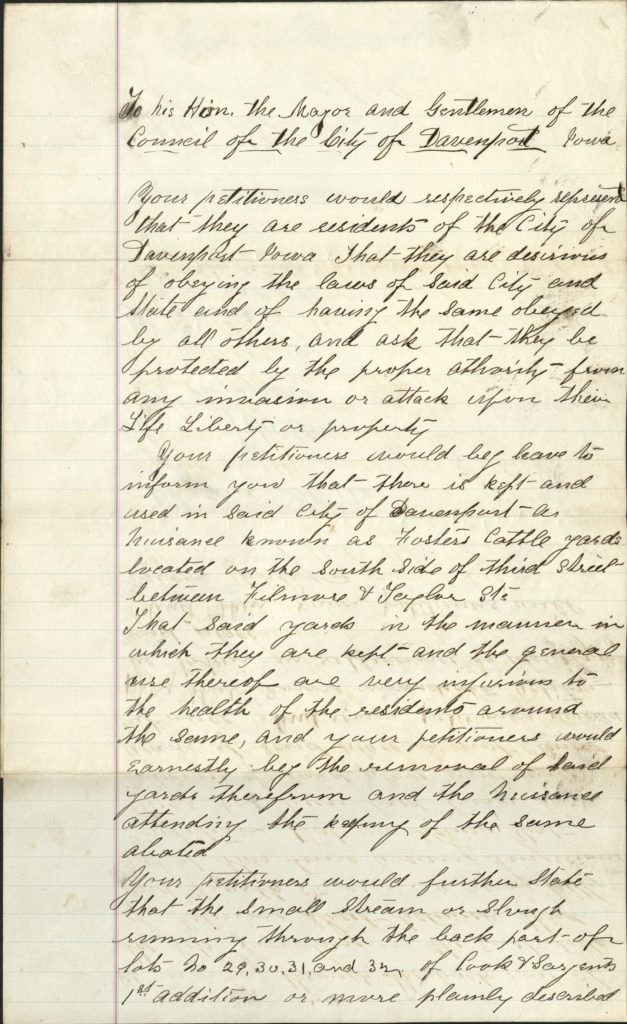 To his Hon. the Mayor and Gentlemen of the
Council of the City of Davenport Iowa
Your petitioners would respectively represent
that they are residents of the City of
Davenport Iowa That they are desirious
of obeying the laws of Said City and
State and of having the Same obeyed
by all others, and ask that they be
protected by the proper athority from
any invasion or attack upon their
Life Liberty or property
Your petitioners would beg leave to
inform you that there is kept and
used in Said City of Davenport a
Nuisance known as Fosters Cattle yards
located on the South Side of third Street
between Filmore & Taylor Sts
That Said yards in the manner in
which they are kept and the general
use thereof are very injurious to
the health of the residents around
the Same, and your petitioners would
Earnestly beg the removal of Said
yards therefrom and the Nuisance
attending the keeping of the Same
abated
Your petitioners would further State
that the Small Stream or Slough
running through the back part of
lots No 29, 30, 31, and 32, of Cook & Sargents
1st addition or more plainly described